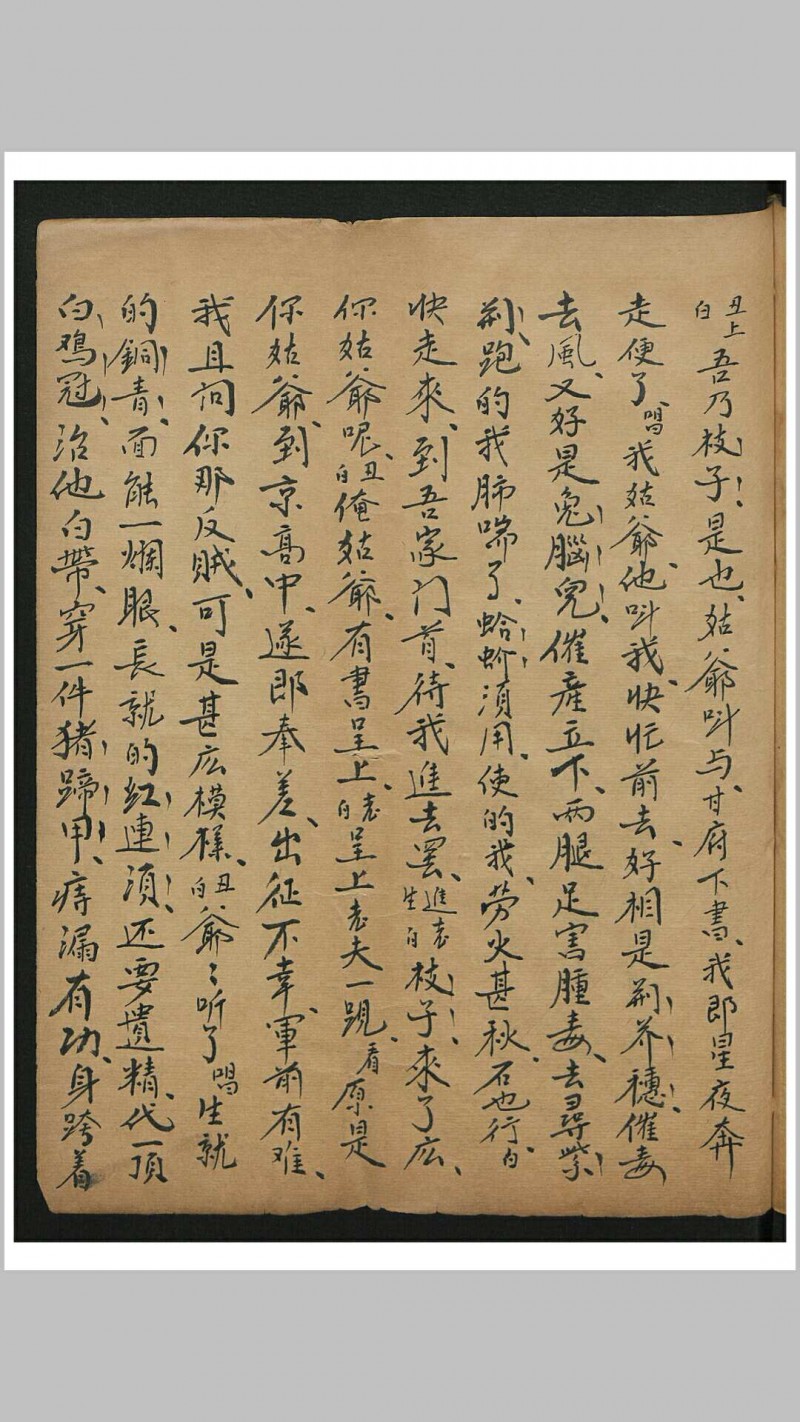 丑上白吾乃枝子是也、姑爺呌与、甘府下書、我即星夜奔
走便了、唱我姑爺、他呌我、快忙前去、好相是荆芥穗、催毒
去風、又好是兔腦兒、催產立下、两腿足害腫毒、去尋紫
荆、跑的我肺喘了、蛤蚧須用、使的我、劳火甚秋、石也行、白
快走來、到吾家门首、待我進去罢、進老生白枝子來了広、
你姑爺呢、丑白俺姑爺、有書呈上、老白呈上老夫一覌、看原是
你姑爺、到京高中、遂即奉差、出征不幸、軍前有难、
我且问你那反賊、可是甚広模樣、丑白爺〻听了唱生就
的銅青、面皉一爛眼、長就的红連須、还要遺精、代一頂
白鸡冠、治他白帶、穿一件猪蹄甲、痔漏有功、身跨着